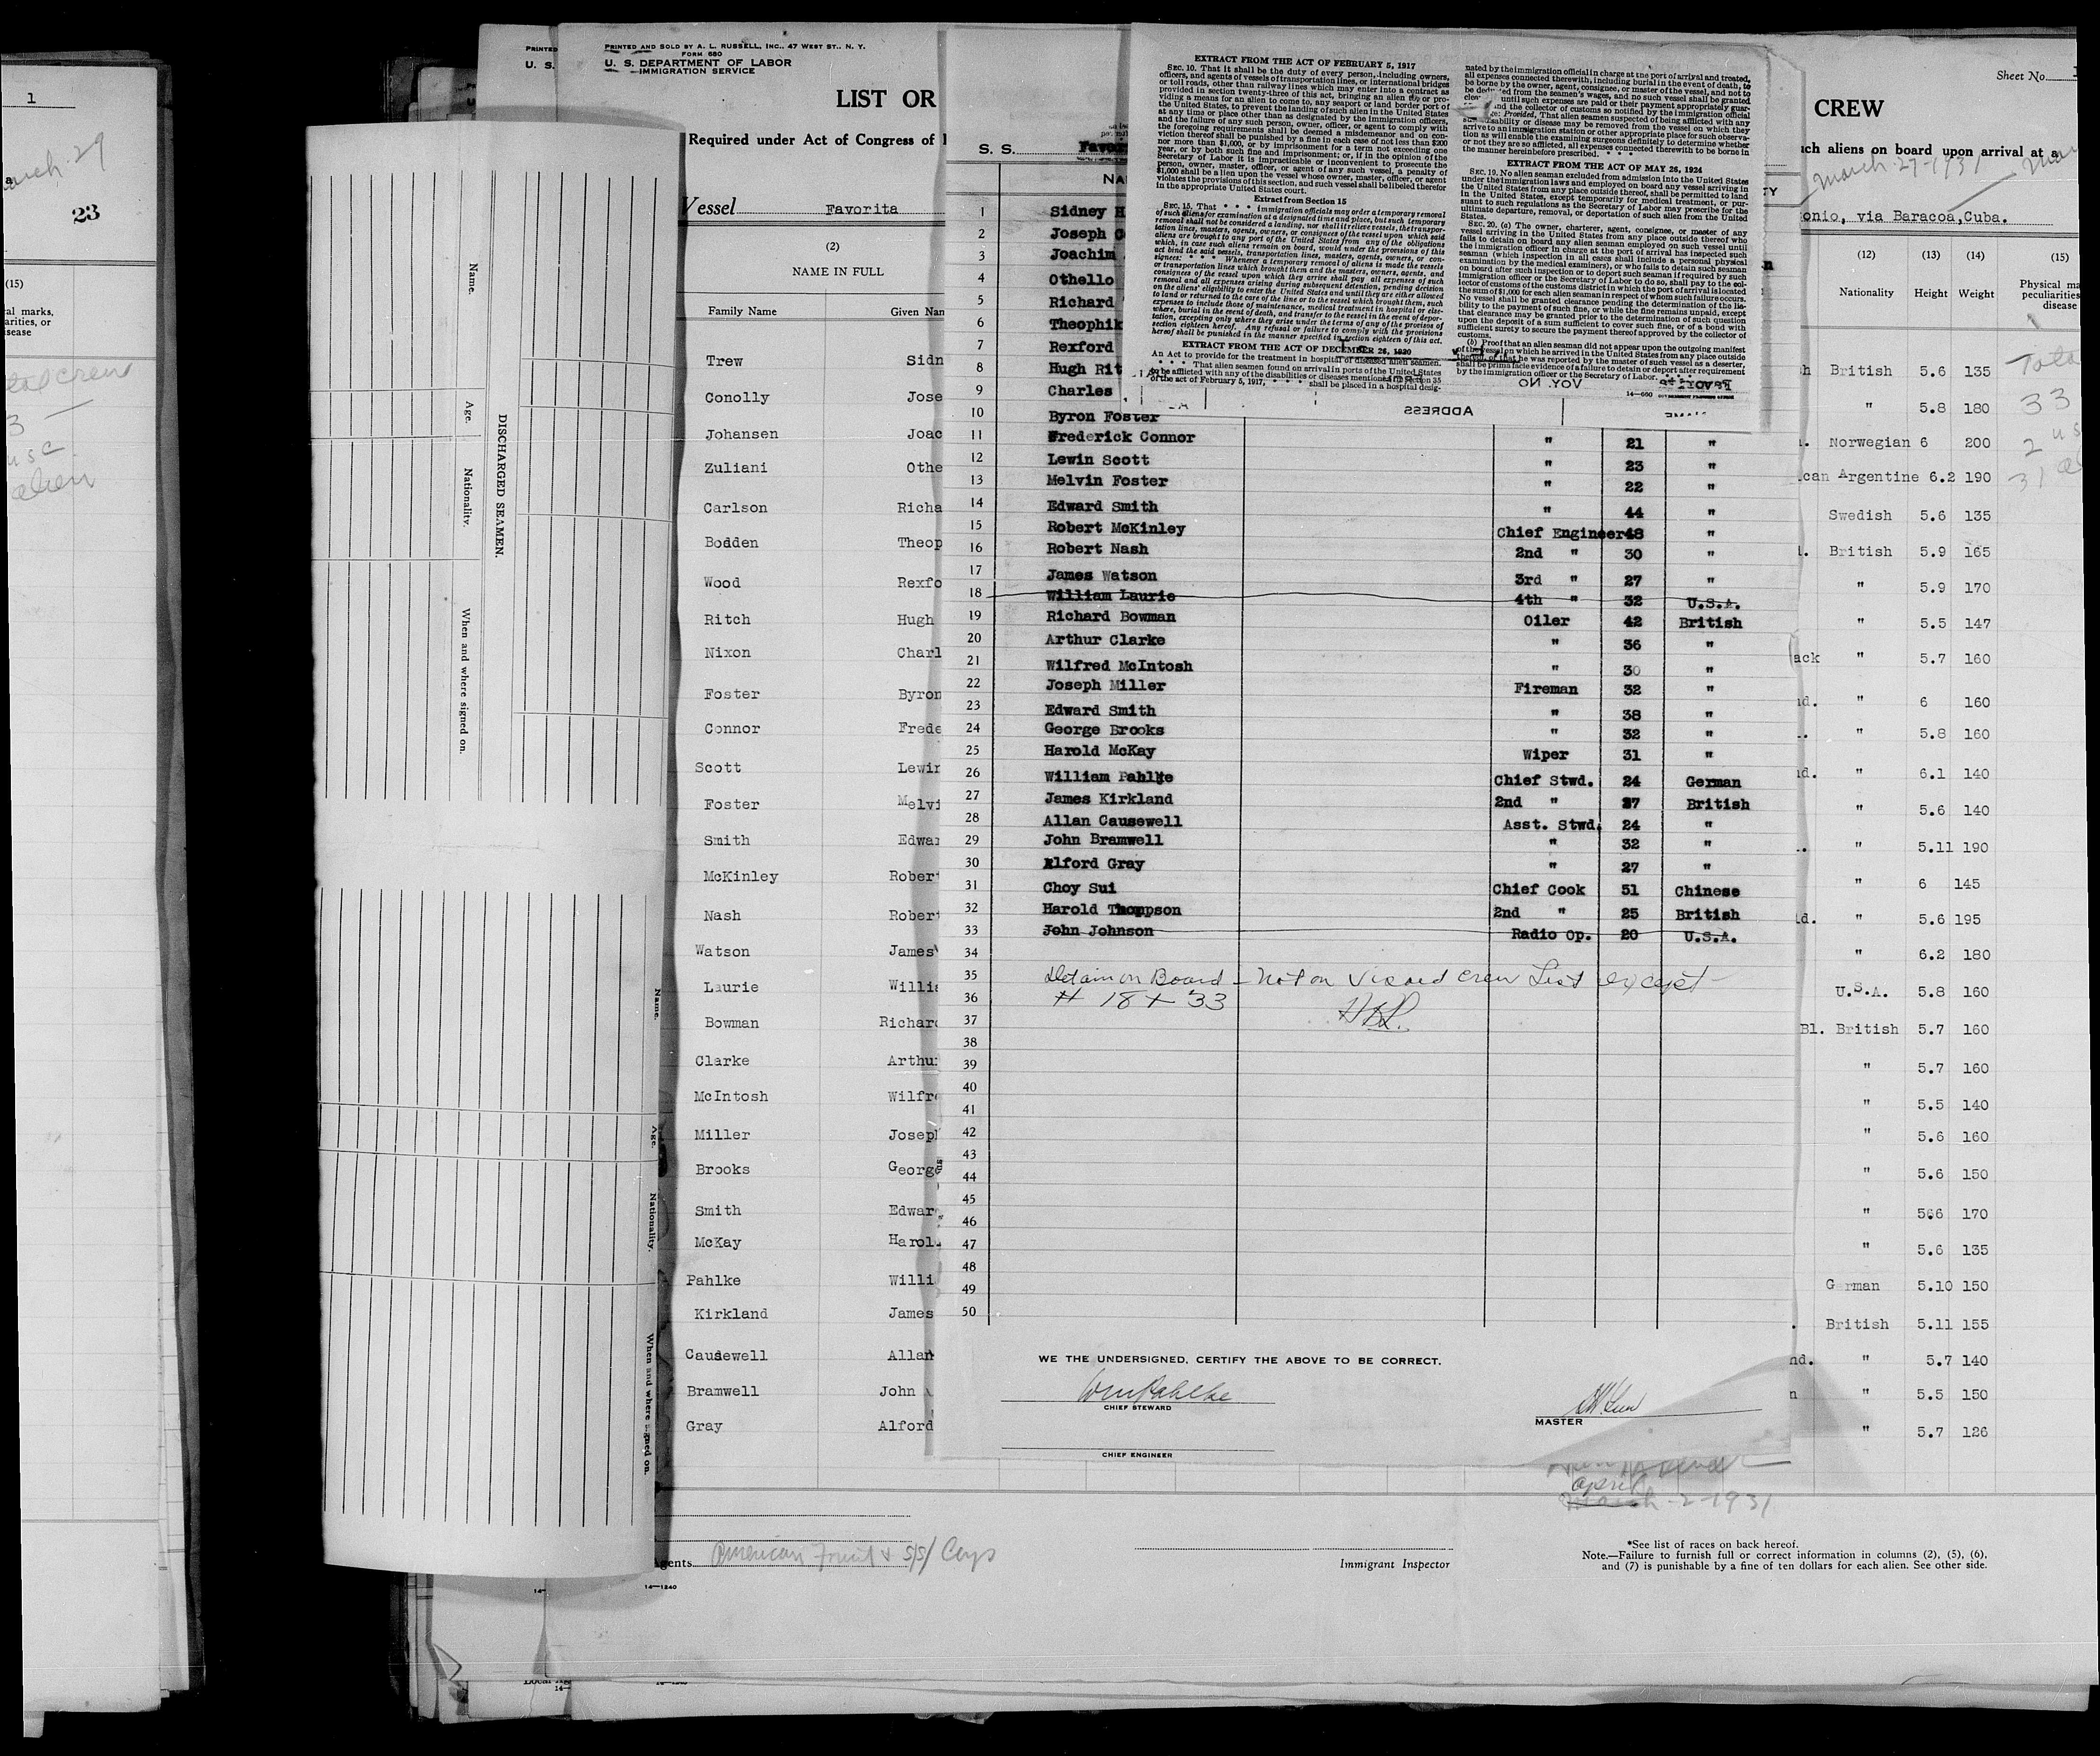 1
March 29
23
(15)
PRINTED AND SOLD BY A. L. RUSSELL, INC., 47 WEST ST., N. Y.
FORM 680
U. S. DEPARTMENT OF LABOR
IMMIGRATION SERVICE
LIST OR
CREW
Sheet No.
Required under Act of Congress of
such aliens on board upon arrival at a
March-27-1931
Vessel Favorita
onio, via Baracoa,Cuba.
(2)
NAME IN FULL
Family Name Given Nam
(12) (13) (14) (15)
Nationality Height Weight Physical ma
peculiarities
disease
Trew Sidn
Conolly Jose
Johansen Joac
Zuliani Othe
Carlson Richa
Bodden Theop
Wood Rexfo
Ritch Hugh
Nixon Charl
Foster Byron
Connor Frede
Scott Lewin
Foster Melvi
Smith Edwar
McKinley Rober
Nash Robert
Watson James
Laurie Willia
Bowman Richard
Clarke Arthur
McIntosh Wilfre
Miller Joseph
Brooks George
Smith Edwar
McKay Harol
Pahlke Willi
Kirkland James
Causewell Allan
Bramwell John
Gray Alford
DISCHARGED SEAMEN.
Name. Age. Nationality. When and where signed on.
Name. Age. Nationality. When and where signed on.
EXTRACT FROM THE ACT OF FEBRUARY 5, 1917
SEC. 10. That it shall be the duty of every person, including owners,
officers, and agents of vessels of transportation lines, or international bridges
or toll roads, other than railway lines which may enter into a contract as
provided in section twenty-three of this act, bringing an alien to, or pro-
viding a means for an alien to come to, any seaport or land border port of
the United States, to prevent the landing of such alien in the United States
at any time or place other than as designated by the immigration officers,
and the failure of any such person, owner, officer, or agent to comply with
the foregoing requirements shall be deemed a misdemeanor and on con-
viction thereof shall be punished by a fine in each case of not less than $200
nor more than $1,000, or by imprisonment for a term not exceeding one
year, or by both such fine and imprisonment; or, if in the opinion of the
Secretary of Labor it is impracticable or inconvenient to prosecute the
person, owner, master, officer, or agent of any such vessel, a penalty of
$1,000 shall be a lien upon the vessel whose owner, master, officer, or agent
violates the provisions of this section, and such vessel shall be libeled therefor
in the appropriate United States court.
Extract from Section 15
SEC. 15. That * * * immigration officials may order a temporary removal
of such aliens for examination at a designated time and place, but such temporary
removal shall not be considered a landing, nor shall it relieve vessels, the transpor-
tation lines, masters, agents, owners, or consignees of the vessel upon which said
aliens are brought to any port of the United States from any of the obligations
which, in case such aliens remain on board, would under the provisions of this
act bind the said vessels, transportation lines, masters, agents, owners, or con-
signees: * * * Whenever a temporary removal of aliens is made the vessels
or transportation lines which brought them and the masters, owners, agents, and
consignees of the vessel upon which they arrive shall pay all expenses of such
removal and all expenses arising during subsequent detention, pending decision
on the aliens' eligibility to enter the United States and until they are either allowed
to land or returned to the care of the line or to the vessel which brought them, such
expenses to include those of maintenance, medical treatment in hospital or else-
where, burial in the event of death, and transfer to the vessel in the event of depor-
tation, excepting only where they arise under the terms of any of the provisos of
section eighteen hereof. Any refusal or failure to comply with the provisions
hereof shall be punished in the manner specified in section eighteen of this act.
EXTRACT FROM THE ACT OF DECEMBER 26, 1920
An Act to provide for the treatment in hospital of diseased alien seamen.
* * * That alien seamen found on arrival in ports of the United States
to be afflicted with any of the disabilities or diseases mentioned in section 35
of the act of February 5, 1917, * * * shall be placed in a hospital desig-
nated by the immigration official in charge at the port of arrival and treated,
all expenses connected therewith, including burial in the event of death, to
be borne by the owner, agent, consignee, or master of the vessel, and not to
be deducted from the seamen's wages, and no such vessel shall be granted
until such expenses are paid or their payment appropriately guar-
and the collector of customs so notified by the immigration official
Provided, That alien seamen suspected of being afflicted with any
disability or disease may be removed from the vessel on which they
arrive to an immigration station or other appropriate place for such observa-
tion as will enable the examining surgeons definitely to determine whether
or not they are so afflicted, all expenses connected therewith to be borne in
the manner hereinbefore prescribed. * * *
EXTRACT FROM THE ACT OF MAY 26, 1924
SEC. 19. No alien seaman excluded from admission into the United States
under the immigration laws and employed on board any vessel arriving in
the United States from any place outside thereof, shall be permitted to land
in the United States, except temporarily for medical treatment, or pur-
suant to such regulations as the Secretary of Labor may prescribe for the
ultimate departure, removal, or deportation of such alien from the United
States.
SEC. 20. (a) The owner, charterer, agent, consignee, or master of any
vessel arriving in the United States from any place outside thereof who
fails to detain on board any alien seaman employed on such vessel until
the immigration officer in charge at the port of arrival has inspected such
seaman (which inspection in all cases shall include a personal physical
examination by the medical examiners), or who fails to detain such seaman
on board after such inspection or to deport such seaman if required by such
immigration officer or the Secretary of Labor to do so, shall pay to the col-
lector of customs of the customs district in which the port of arrival is located
the sum of $1,000 for each alien seaman in respect of whom such failure occurs.
No vessel shall be granted clearance pending the determination of the lia-
bility to the payment of such fine, or while the fine remains unpaid, except
that clearance may be granted prior to the determination of such question
upon the deposit of a sum sufficient to cover such fine, or of a bond with
sufficient surety to secure the payment thereof approved by the collector of
customs.
(b) Proof that an alien seaman did not appear upon the outgoing manifest
of the vessel on which he arrived in the United States from any place outside
thereof, or that he was reported by the master of such vessel as a deserter,
shall be prima facie evidence of a failure to detain or deport after requirement
by the immigration officer or the Secretary of Labor.
14—660
VOY. NO
ADDRESS
S. S. Favor
NA
1 Sidney H
2 Joseph C
3 Joachim
4 Othello
5 Richard
6 Theophil
7 Rexford
8 Hugh Rit
9 Charles
10 Byron Foster
11 Frederick Connor " 21 "
12 Lewin Scott " 23 "
13 Melvin Foster " 22 "
14 Edward Smith " 44 "
15 Robert McKinley Chief Engineer 48 "
16 Robert Nash 2nd " 30 "
17 James Watson 3rd " 27 "
18 William Laurie 4th " 32 U.S.A.
19 Richard Bowman Oiler 42 British
20 Arthur Clarke " 36 "
21 Wilfred McIntosh " 30 "
22 Joseph Miller Fireman 32 "
23 Edward Smith " 38 "
24 George Brooks " 32 "
25 Harold McKay Wiper 31 "
26 William Pahlke Chief Stwd. 24 German
27 James Kirkland 2nd " 27 British
28 Allan Causewell Asst. Stwd. 24 "
29 John Bramwell " 32 "
30 Alford Gray " 27 "
31 Choy Sui Chief Cook 51 Chinese
32 Harold Thompson 2nd " 25 British
33 John Johnson Radio Op. 20 U.S.A.
34
35 Detain on Board - not on visaed crew List except
36 # 18 + 33
37
38
39
40
41
42
43
44
45
46
47
48
49
50
WE THE UNDERSIGNED, CERTIFY THE ABOVE TO BE CORRECT.
Wm Pahlke
CHIEF STEWARD
MASTER
CHIEF ENGINEER
British 5.6 135
" 5.8 180
Norwegian 6 200
can Argentine 6.2 190
Swedish 5.6 135
British 5.9 165
" 5.9 170
" 5.5 147
ack " 5.7 160
nd. " 6 160
" 5.8 160
nd. " 6.1 140
" 5.6 140
" 5.11 190
" 6 145
ld. " 5.6 195
" 6.2 180
U.S.A. 5.8 160
Bl. British 5.7 160
" 5.7 160
" 5.5 140
" 5.6 160
" 5.6 150
" 566 170
" 5.6 135
German 5.10 150
British 5.11 155
nd. " 5.7 140
n " 5.5 150
" 5.7 126
Tota
33
2 us
31 al
April
March-2-1931
gents American Fruit & S/S/ Corp
14—1240
Immigrant Inspector
*See list of races on back hereof.
Note.—Failure to furnish full or correct information in columns (2), (5), (6),
and (7) is punishable by a fine of ten dollars for each alien. See other side.